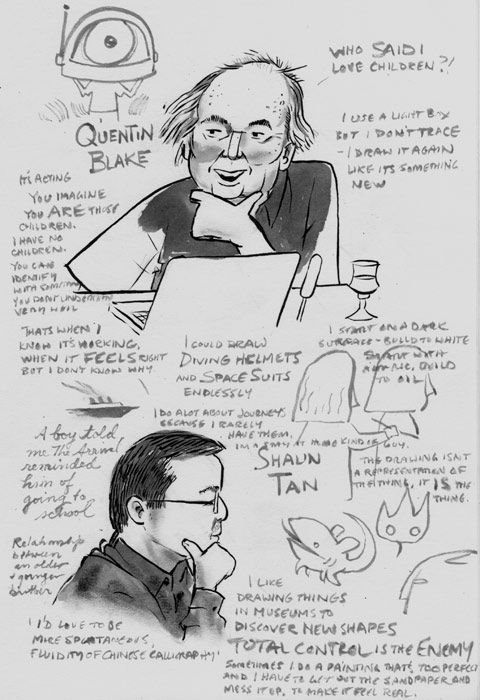 WHO SAID I
LOVE CHILDREN?!
QUENTIN
BLAKE
I USE A LIGHT BOX
BUT I DON'T TRACE
- I DRAW IT AGAIN
LIKE ITS SOMETHING
NEW
ITS ACTING
YOU IMAGINE
YOU ARE THOSE
CHILDREN.
I HAVE NO
CHILDREN.
YOU CAN
IDENTIFY
WITH SOMETHING
YOU DON'T UNDERSTAND
VERY WELL
THAT'S WHEN I
KNOW ITS WORKING,
WHEN IT FEELS RIGHT
BUT I DON'T KNOW WHY.
I COULD DRAW
DIVING HELMETS
AND SPACE SUITS
ENDLESSLY
I START ON A DARK
SURFACE - BUILD TO WHITE
START WITH
ACRYLIC, BUILD
TO OIL
I DO A LOT ABOUT JOURNEYS
BECAUSE I RARELY
HAVE THEM,
I'M A STAY AT HOME KIND OF GUY.
SHAUN
TAN
THE DRAWING ISN'T
A REPRESENTATION OF
THE THING, IT IS THE
THING.
A boy told
me The Arrival
reminded
him of
going to
school
Relationship
between
an older
& younger
brother
I'D LOVE TO BE
MORE SPONTANEOUS,
FLUIDITY OF CHINESE CALLIGRAPHY
I LIKE
DRAWING THINGS
IN MUSEUMS TO
DISCOVER NEW SHAPES
TOTAL CONTROL IS THE ENEMY
SOMETIMES I DO A PAINTING THAT'S TOO PERFECT
AND I HAVE TO GET OUT THE SANDPAPER AND
MESS IT UP, TO MAKE IT FEEL REAL.